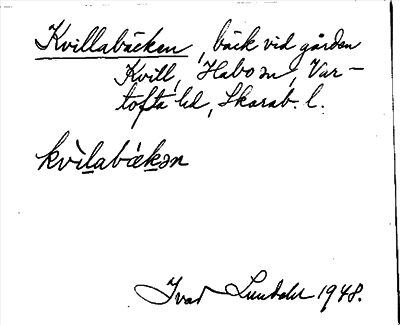 Kvillabäcken, bäck vid gården
Kvill, Habo sn, Var-
tofta hd, Skarab. l.
kvìlabækən
Ivar Lundahl 1948.